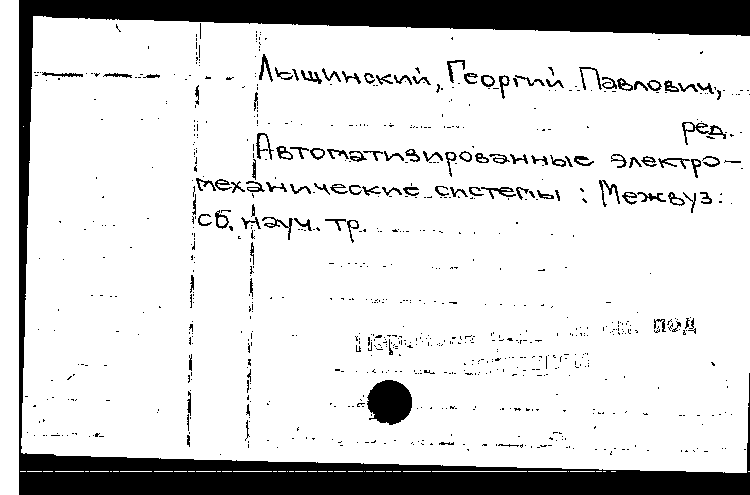 Лыщинский, Георгий Павлович,
ред.
Автоматизированные электро-
механические системы : Межвуз.
сб. науч. тр.
под